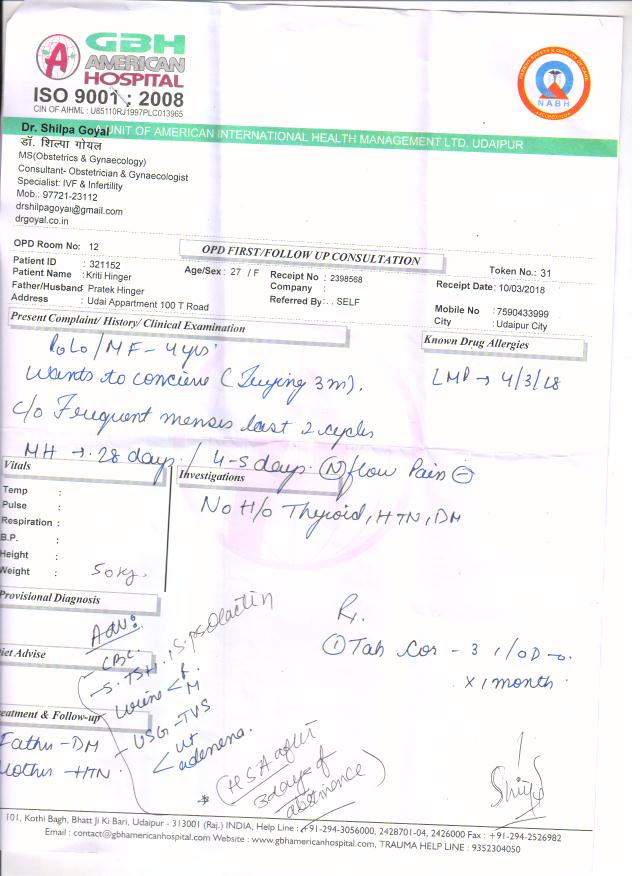 GBH
AMERICAN
HOSPITAL
ISO 9001 : 2008
CIN OF AIHML : U85110RJ1997PLC013965
NABH
Dr. Shilpa Goyal UNIT OF AMERICAN INTERNATIONAL HEALTH MANAGEMENT LTD. UDAIPUR
डॉ. शिल्पा गोयल
MS(Obstetrics & Gynaecology)
Consultant- Obstetrician & Gynaecologist
Specialist: IVF & Infertility
Mob.: 97721-23112
drshilpagoyal@gmail.com
drgoyal.co.in
OPD Room No: 12
OPD FIRST/FOLLOW UP CONSULTATION
Token No.: 31
Patient ID : 321152
Age/Sex : 27 / F
Receipt No : 2398568
Receipt Date: 10/03/2018
Patient Name : Kriti Hinger
Company :
Father/Husband: Pratek Hinger
Referred By: . . SELF
Mobile No : 7590433999
Address : Udai Appartment 100 T Road
City : Udaipur City
Present Complaint/ History/ Clinical Examination
Known Drug Allergies
P0L0 / MF - 4 yrs
LMP → 4/3/18
Wants to concieve (Trying 3m).
c/o Frequent menses last 2 cycles
MH → 28 days / 4-5 days (N) flow Pain ⊖
Vitals
Investigations
No H/o Thyroid, HTN, DM
Temp :
Pulse :
Respiration :
B.P. :
Height :
Weight : 50 kg.
Provisional Diagnosis
Adv:
CBC
S. TSH, S. psolactin
Urine < R
M
USG - TVS
< ut
adenexa.
Rx.
① Tab Cor - 3 1/OD
x 1 month
iet Advise
eatment & Follow-up
Father - DM
Mother - HTN
* (HSA after
3 days of
abstinence)
101, Kothi Bagh, Bhatt Ji Ki Bari, Udaipur - 313001 (Raj.) INDIA, Help Line : +91-294-3056000, 2428701-04, 2426000 Fax : +91-294-2526982
Email : contact@gbhamericanhospital.com Website : www.gbhamericanhospital.com, TRAUMA HELP LINE : 9352304050